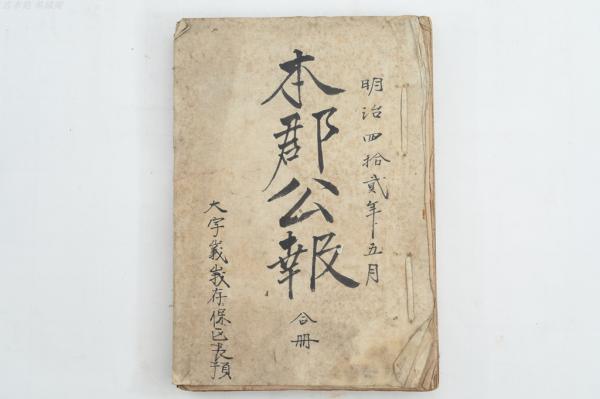 明治四拾貳年五月
本郡公報
合冊
大字
存保区長預